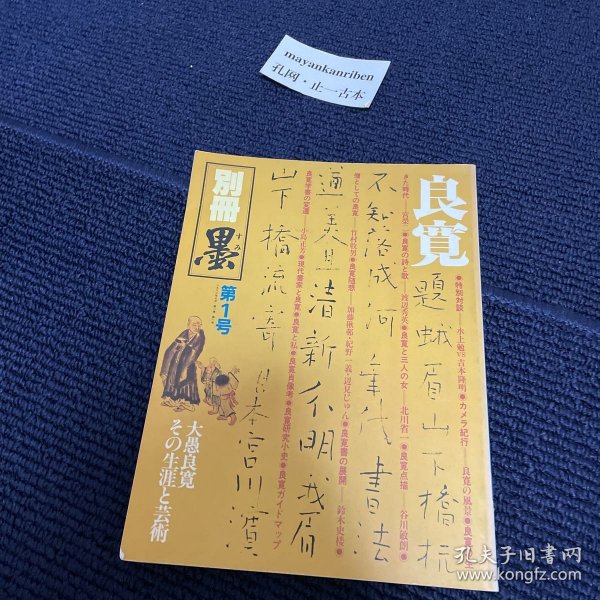 mayankanriben
孔网·止一古本
良寛
●特別対談——水上勉VS吉本隆明●カメラ紀行——良寛の風景●良寛
きた時代——宮栄二●良寛の詩と歌——渡辺秀英●良寛と三人の女——北川省一●良寛点描——谷川敏朗●
僧としての良寛——竹村牧男●良寛随想——加藤楸邨・紀野一義・辺見じゅん●良寛書の展開——鈴木史楼●
良寛学書の変遷——小島正芳●現代書家と良寛●良寛と私●良寛肖像考●良寛研究小史●良寛ガイドマップ
題蛾眉山下橋杭
不知落成何年代書法
遒美且清新分明我眉
山下橋流寄日本宮川濱
別冊
墨
すみ
第1号
大愚良寛
その生涯と芸術
孔夫子旧书网
www.kongfz.com